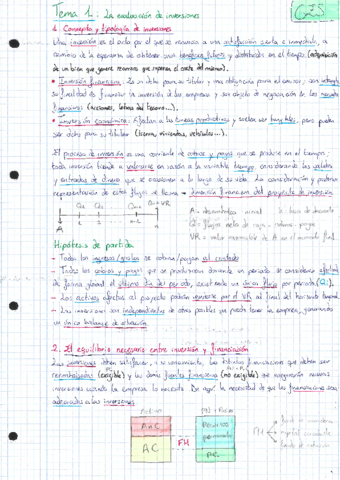 Tema 1: La evaluación de inversiones
1. Concepto y tipología de inversiones
Una inversión es el acto por el que se renuncia a una satisfacción cierta e inmediata, a
cambio de la esperanza de obtener unos beneficios futuros y distribuidos en el tiempo (adquisición
de un bien que genere recursos que superen el coste del mismo).
• Inversión financiera: Es un dcho para su titular y una obligación para el emisor, con
su finalidad de financiar la inversión de las empresas y son objeto de negociación en los mercados
financieros (acciones, letras del tesoro...).
• Inversión económica: Afectan a las tareas productivas y suelen ser tangibles, pero pueden
ser dcho para su titular (terreno, viviendas, vehículos...).
El proceso de inversión es una corriente de cobros y pagos que se produce en el tiempo;
toda inversión tiende a valorarse en razón a la variable tiempo, considerando las salidas
y entradas de dinero que se ocasionan a lo largo de su vida. La consideración y posterior
representación de estos flujos se llama → dimensión financiera del proyecto de inversión
A = desembolso inicial
Q = flujos neto de caja = cobros - pagos
VR = valor remanente de A en el momento final
Hipótesis de partida
- Todos los ingresos/gastos se cobran/pagan al contado
- Todos los cobros y pagos que se produzcan durante un periodo se consideran
de forma global el último día del periodo, existiendo un único flujo por periodo (Q).
- Los activos afectos al proyecto podrán venderse por el VR al final del horizonte temporal
- Las inversiones son independientes de otras posibles que pueda tener la empresa, generando
un único balance de situación.
2. El equilibrio necesario entre inversión y financiación
Las inversiones deben satisfacer, a su vencimiento, las distintas financiaciones que deben ser
reembolsadas (exigible) y las demás fuentes financieras (no exigible) que asegurarán nuevas
inversiones cuando la empresa lo necesite. De aquí la necesidad de que las financiaciones sean
adecuadas a las inversiones.
Activo
PN + Pasivo
AnC
AC
FM
Recursos
permanentes
PC
FM